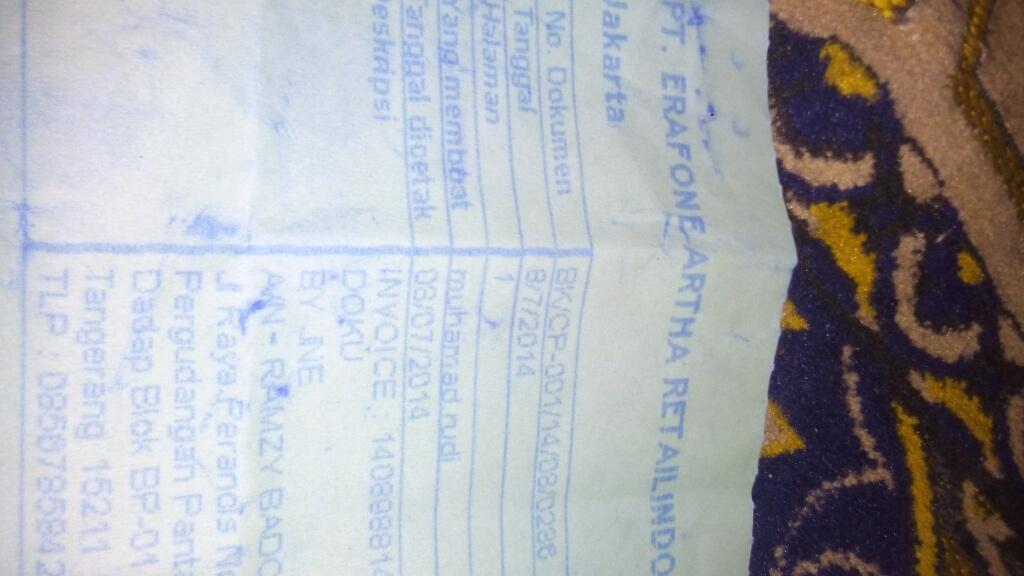 PT. ERAFONE ARTHA RETAILINDO
Jakarta
No. Dokumen BK/CP-001/14/08/0286
Tanggal 8/7/2014
Halaman 1
yang membuat muhamad rudi
Tanggal dicetak 08/07/2014
Deskripsi INVOICE : 14088814
DOKU
BY JNE
AN - RAMZY BADO
Jl Raya Perancis No
Pergudangan Panta
Dadap Blok BP-01
Tangerang 15211
TLP : 0856785842